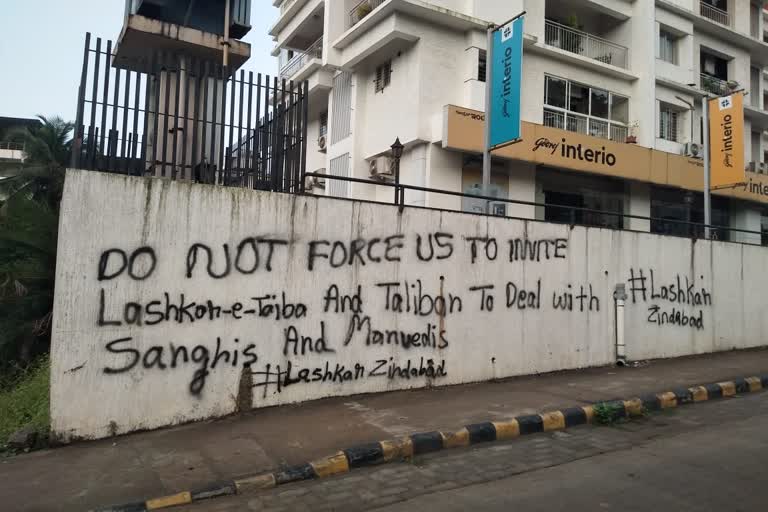 DO NOT FORCE US TO INVITE
Lashkar-e-Taiba And Taliban To Deal with
Sanghis And Manvedis
#Lashkar Zindabad
#Lashkar
Zindabad
Godrej interio
Godrej interio
Godrej interio